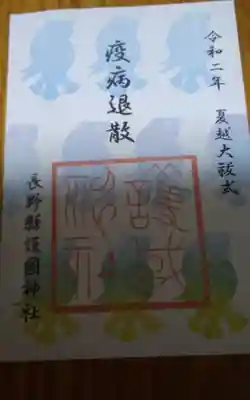 令和二年 夏越大祓式
疫病退散
長野縣護國神社